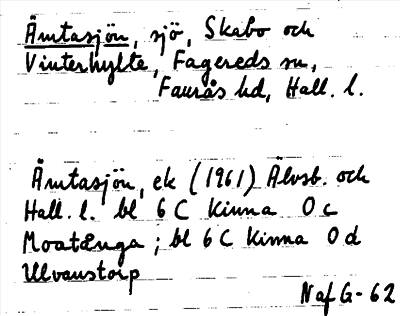 Ämtasjön, sjö, Skabo och
Vinterhylte, Fagereds sn,
Faurås hd, Hall. l.
Ämtasjön, ek (1961) Älvsb. och
Hall. l. bl 6 C Kinna 0 c
Moatånga; bl 6 C Kinna 0 d
Ulvanstorp
Naf G-62